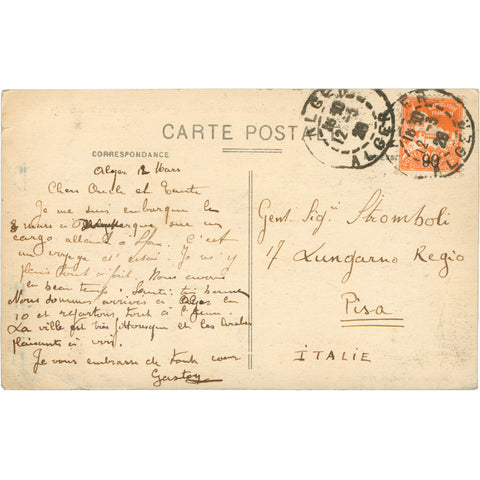 CARTE POSTALE
CORRESPONDANCE
ALGER 16 30 12 -3 26 ALGER
Alger 12 Mars
Cher Oncle et Tante
Je me suis embarqué le
8 mars à Dunkerque sur un
cargo allant à C'est
un voyage d'essai. Je m'y
plais tout à fait. Nous avons
eu beau temps. Santé très bonne
Nous sommes arrivés à Alger le
10 et repartons tout à l'heure.
La ville est très et les Arabes
plaisants à voir.
Je vous embrasse de tout cœur
Gaston
Gent. Sigⁱ Stromboli
17 Lungarno Regio
Pisa
ITALIE